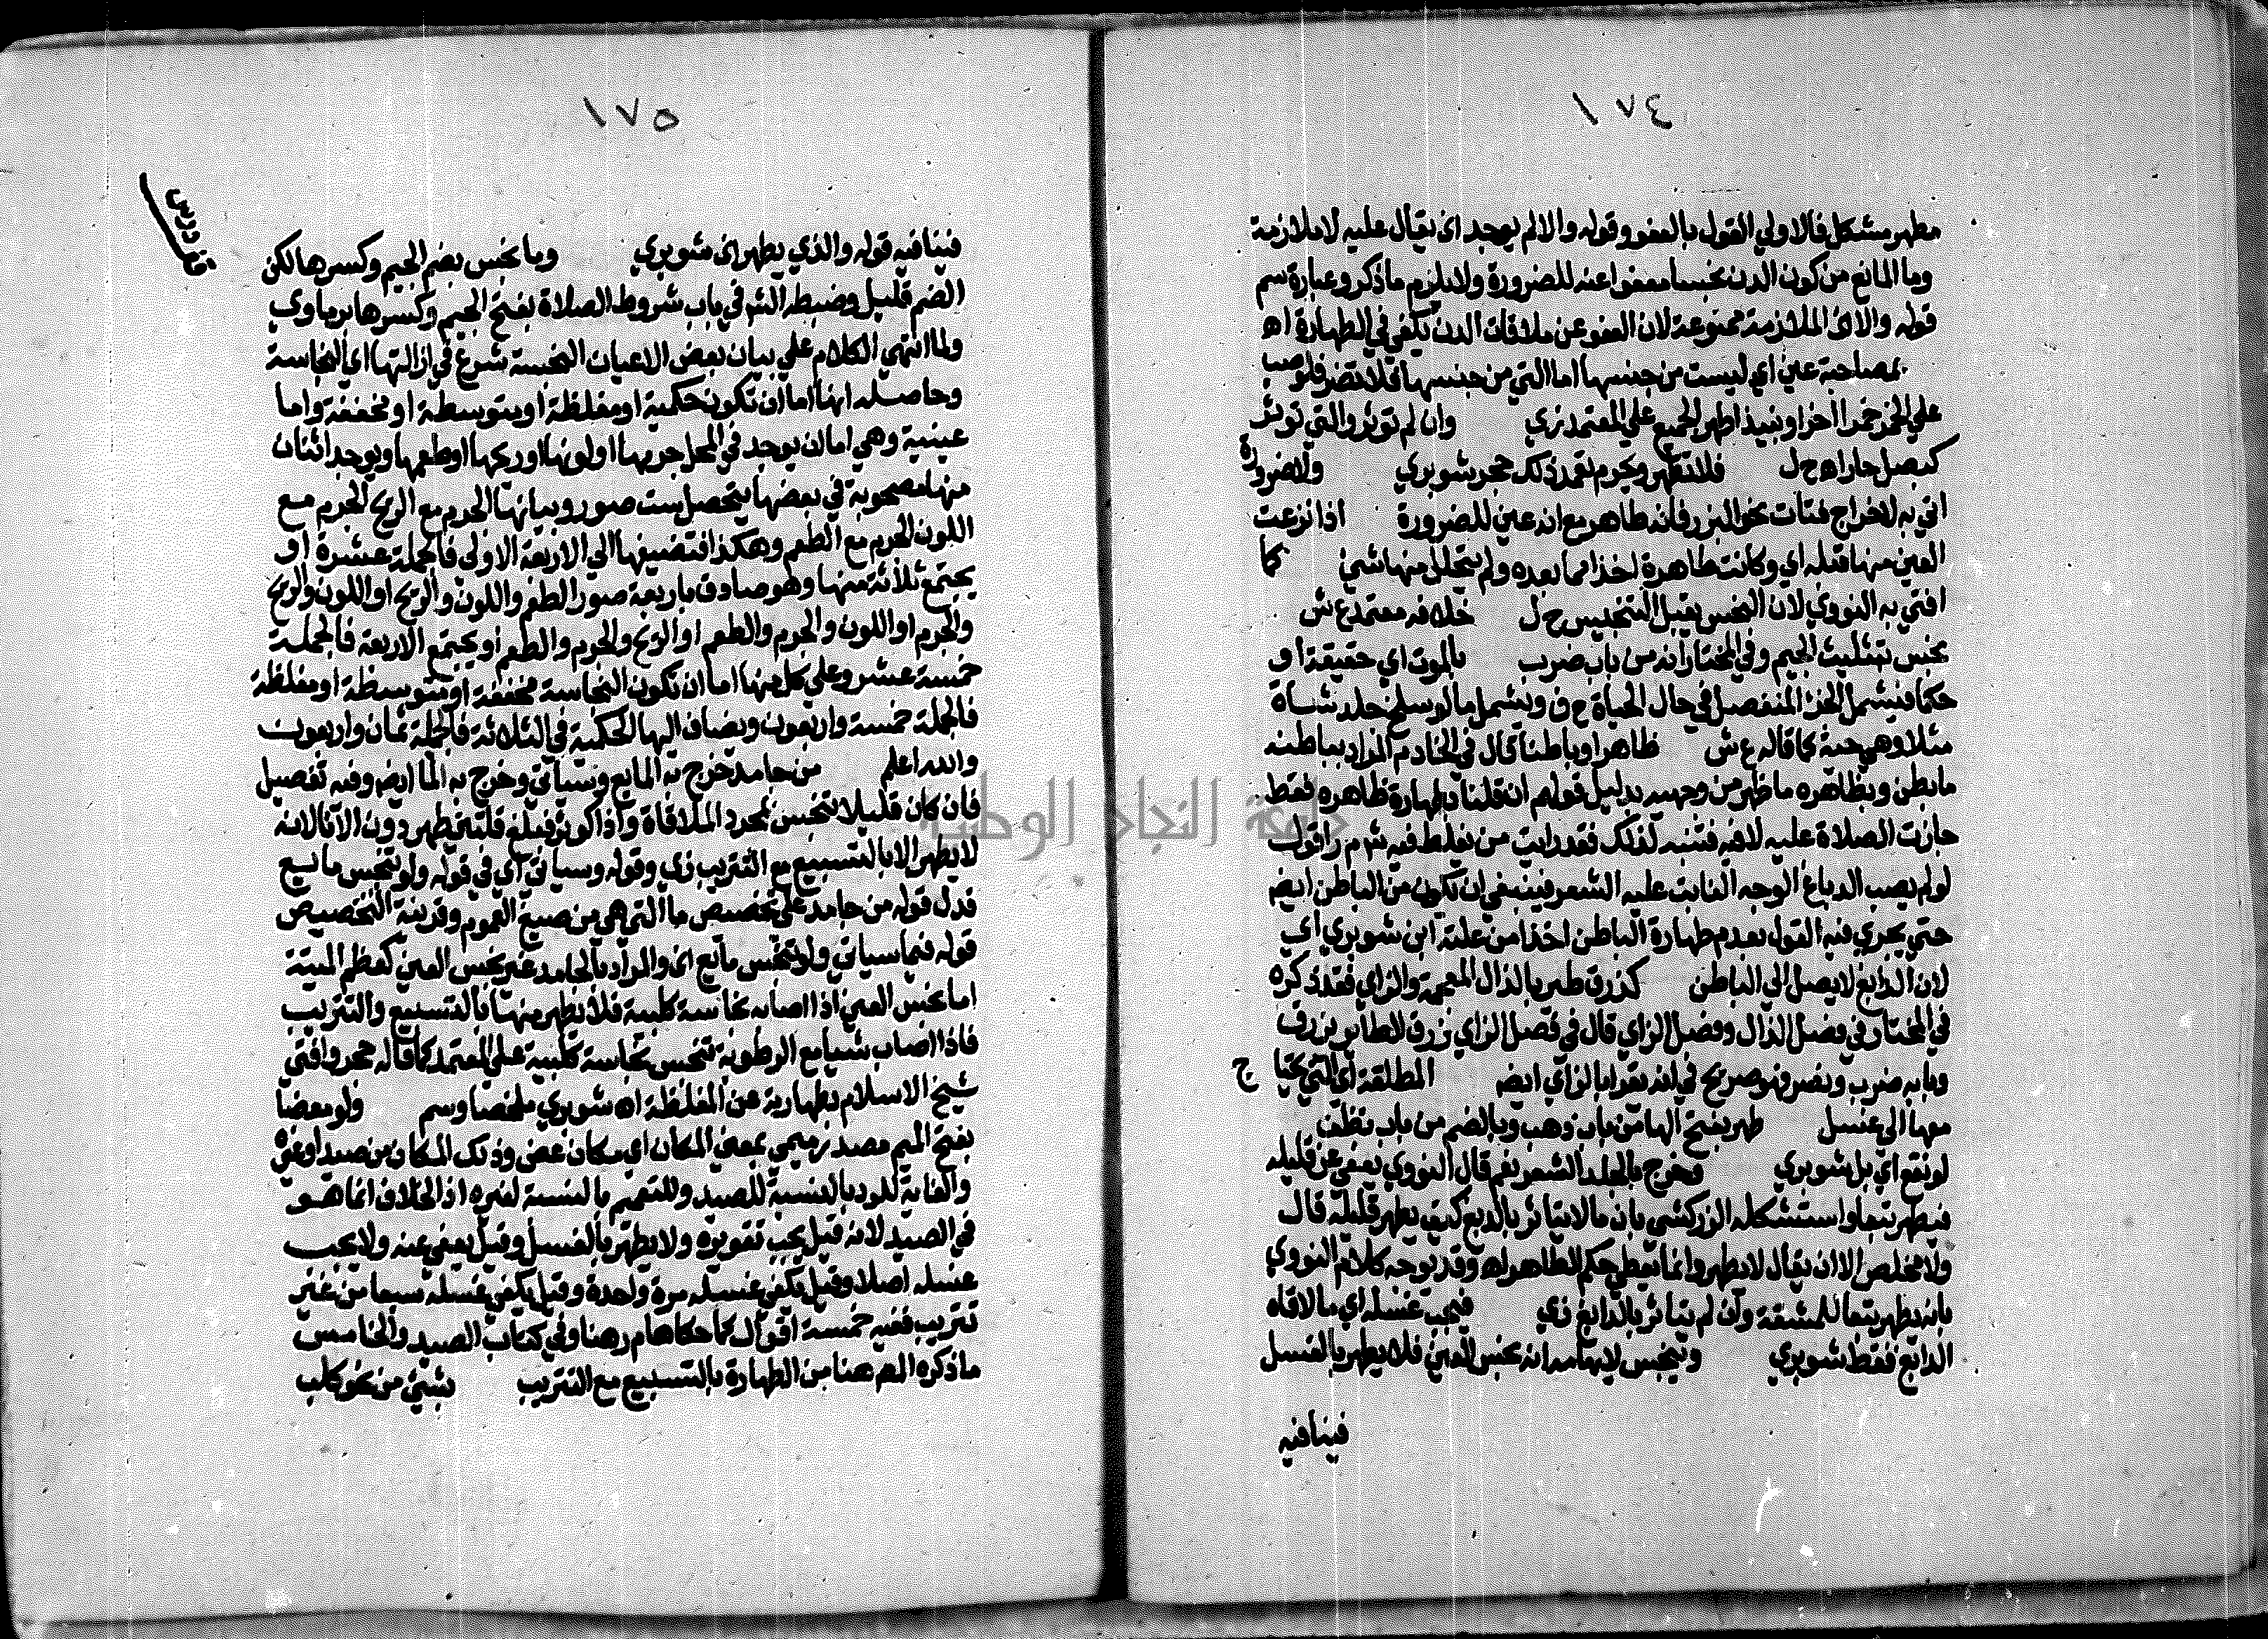 ١٧٤
مطهر مشكل فالاولي القول بالعفو وقوله والا لم يوجد اي يقال عليه لا ملازمة
وما المانع من كون الدن نجسا معفوا عنه للضرورة ولا يلزم ما ذكر وعبارة سم
قوله والا الخ الملازمة ممنوعة لان العفو عن ملاقات الدن تكفي في الطهارة اه
بمصاحبة عين اي ليست من جنسها اما التي من جنسها فلا تضر فلو صب
علي الخمر خمرا اخر او نبيذا طهر الجميع علي المعتمد زي وان لم توثر والتي توثر
كبصل حار اه ح ل فلا تطهر ويحرم تعمد ذلك حجر شوبري ولا ضرورة
اتي به لاخراج فتات نحو البزر فانه طاهر مع انه عين للضرورة اذا نزعت
العين منها قبله اي وكانت طاهرة اخذا مما بعده ولم يتحلل منها شئ كما
افتي به النووي لان النجس يقبل التنجيس ح ل خلافه معتمد ع ش
نجس بتثليث الجيم وفي المختار انه من باب ضرب بالموت اي حقيقة او
حكما فيشمل الجزء المنفصل في حال الحياة ع ن ويشمل ما لو سلخ جلد شاة
مثلا وهي حية كما قاله ع ش ظاهرا وباطنا قال في الخادم المراد بباطنه
ما بطن وبظاهره ما ظهر من وجهيه بدليل قولهم ان قلنا بطهارة ظاهره فقط
جازت الصلاة عليه لا فيه فتنبه لذلك فقد رايت من يغلط فيه ش م ر اقول
لو لم يصب الدباغ الوجه النابت عليه الشعر فينبغي ان تكون من الباطن ايض
حتي يجري فيه القول بعدم طهارة الباطن اخذا من علته ابن شوبري اي
لان الدابغ لا يصل الي الباطن كذرق طير بالذال المعجمة والزاي فقد ذكره
في المختار في فصل الذال وفصل الزاي قال في فصل الزاي زرق الطاير يزرق
وبابه ضرب ونصر فهو صريح في انه يقرا بالزاي ايض المطلقة اي التي يحتاج
معها الي غسل طهر بفتح الها من باب ذهب وبالضم من باب تظف
لو نقع اي بل شوبري وخرج بالجلد الشعر نعم قال النووي يعفي عن قليله
فيطهر تبعا واستشكله الزركشي بان ما لا يتاثر بالدبغ كيف يطهر قليله قال
ولا مخلص الا ان يقال لا يطهر وانما يعطي حكم الطاهر اه وقد يوجه كلام النووي
بانه يطهر تبعا للمشقة وان لم يتاثر بالدابغ زي فيجب غسله اي ما لاقاه
الدابغ فقط شوبري وتنجس لا يقاممدا نه نجس العين فلا يطهر بالغسل
فينافيه
١٧٥
فينافيه قوله والذي يظهر الخ شوبري وما نجس بضم الجيم وكسرها لكن
الضم قليل وضبطه الشم في باب شروط الصلاة بفتح الجيم وكسرها برماوي
ولما انتهي الكلام علي بيان بعض الاعيان النجسة شرع في ازالتها اي النجاسة
وحاصله انها اما ان تكون حكمية او مغلظة او متوسطة او مخففة واما
عينية وهي اما ان يوجد في المحل جرمها او لونها او ريحها او طعمها ويوجد اثنان
منها مصحوبة في بعضها يتحصل ست صور وبيانها الجرم مع الريح الجرم مع
اللون الجرم مع الطعم وهكذا فتضيفها الي الاربعة الاولي فالجملة عشرة او
يجتمع ثلاثة منها وهو صادق باربعة صور الطعم واللون والريح او اللون والريح
والجرم او اللون والجرم والطعم او الريح والجرم والطعم او يجتمع الاربعة فالجملة
خمسة عشر وعلي كل منها اما ان تكون النجاسة مخففة او متوسطة او مغلظة
فالجملة خمسة واربعون ويضاف اليها الحكمية في الثلاثة فالجملة ثمان واربعون
والله اعلم من جامد خرج به المايع وسياتي وخرج به الما ايض وفيه تفصيل
فان كان قليلا تنجس بمجرد الملاقاة واذا كوثر فبلغ قلتين طهر دون الانا لانه
لا يطهر الا بالتسبيع مع التتريب زي وقوله وسياتي اي في قوله ولو تنجس مايع
قدل قوله من جامد علي تخصيص ما التي هي من صيغ العموم وقرينة التخصيص
قوله فيما سياتي ولو تنجس مايع الخ والمراد بالجامد غير نجس العين كعظم الميتة
اما نجس العين اذا اصابه نجاسة كلبية فلا يطهر منها بالتسبيع والتتريب
فاذا اصاب شيا مع الرطوبة تنجس نجاسة كلبية علي المعتمد كما قاله حجر وافتي
شيخ الاسلام بطهارته عن المغلظة اه شوبري ملخصا وسم ولو معضا
بفتح الميم مصدر ميمي بمعني المكان اي مكان عض وذلك المكان من صيد او غيره
والغاية للرد بالنسبة للصيد وللتعميم بالنسبة لغيره اذ الخلاف انما هو
في الصيد لانه قيل يجب تقويره ولا يطهر بالغسل وقيل يعفي عنه ولا يجب
غسله اصلا وقيل يكفي غسله مرة واحدة وقيل يكفي غسله سبعا من غير
تتريب ففيه خمسة اقوال كما حكاها م ر هنا وفي كتاب الصيد والخامس
ما ذكره المص هنا من الطهارة بالتسبيع مع التتريب بشئ من نحو كلب
جامعة النجاح الوطنية